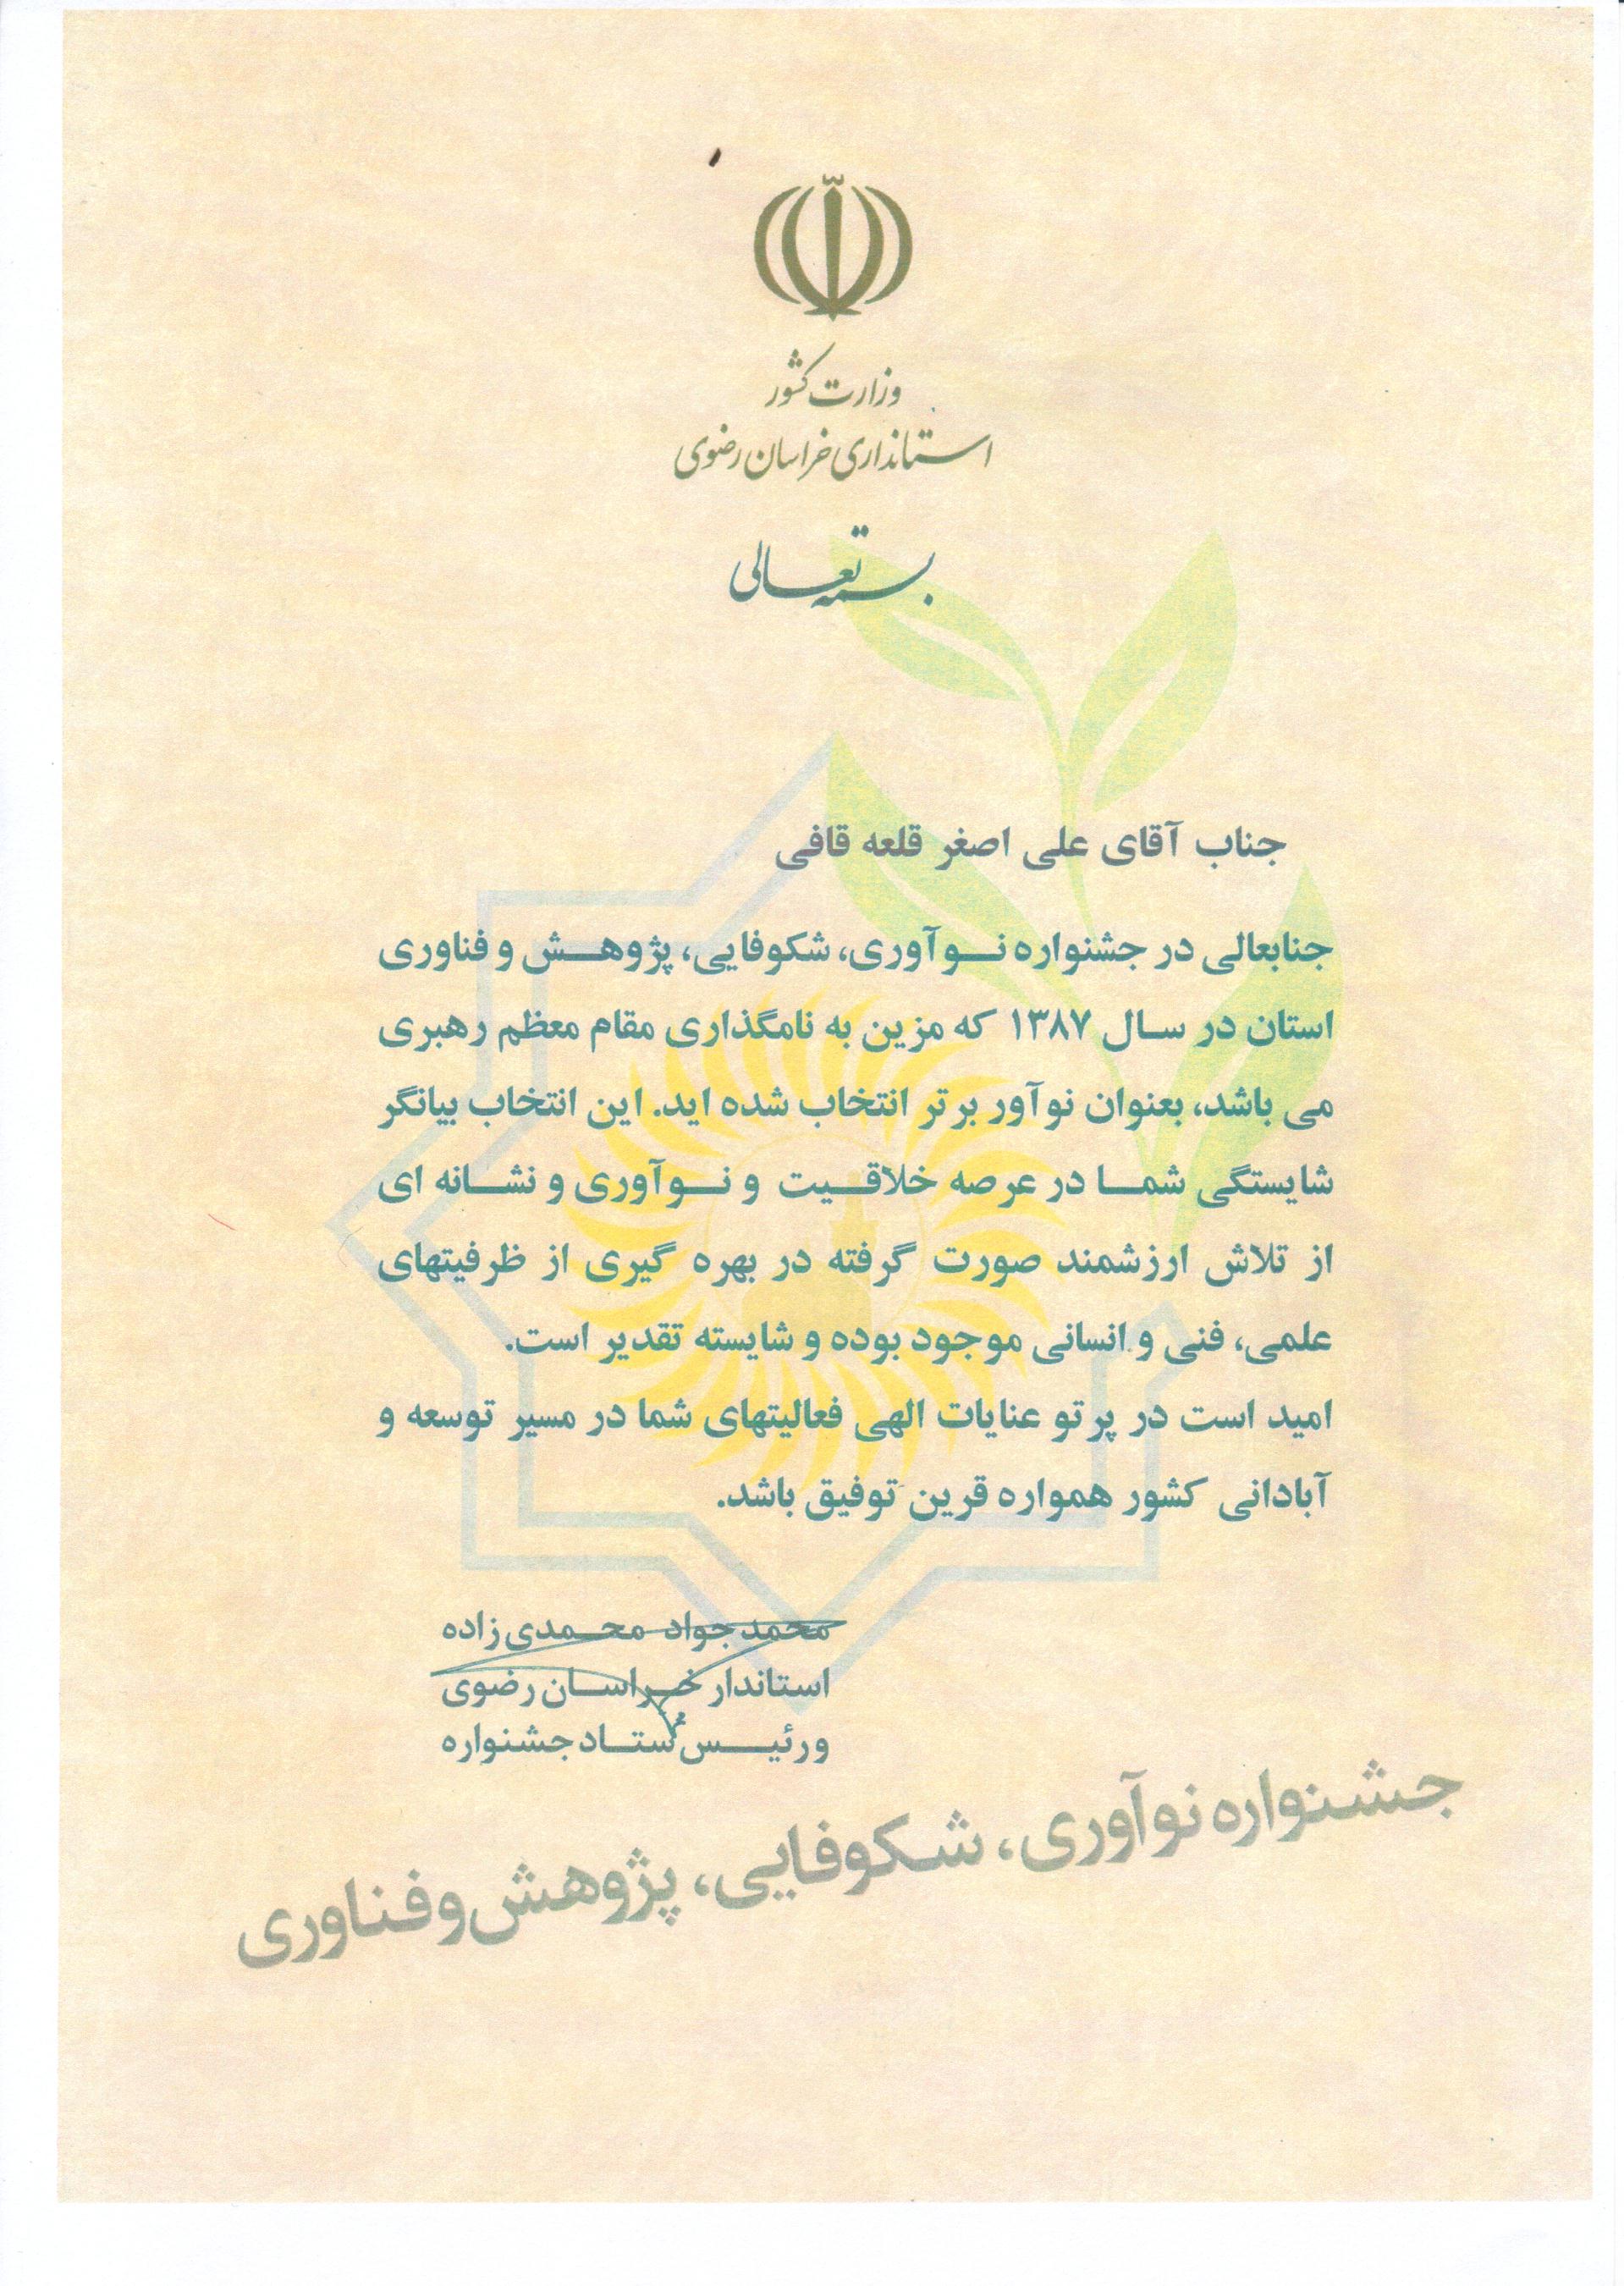 وزارت کشور
استانداری خراسان رضوی
بسمه تعالی
جناب آقای علی اصغر قلعه قافی
جنابعالی در جشنواره نـــوآوری، شکوفایی، پژوهـــش و فناوری
استان در ســال ۱۳۸۷ که مزین به نامگذاری مقام معظم رهبری
می باشد، بعنوان نوآور برتر انتخاب شده اید. این انتخاب بیانگر
شایستگی شمــا در عرصه خلاقـــیت و نـــوآوری و نشـــانه ای
از تلاش ارزشمند صورت گرفته در بهره گیری از ظرفیتهای
علمی، فنی و انسانی موجود بوده و شایسته تقدیر است.
امید است در پرتو عنایات الهی فعالیتهای شما در مسیر توسعه و
آبادانی کشور همواره قرین توفیق باشد.
محمد جواد محـــمدی زاده
استاندار خـــراســـان رضوی
و رئیـــس ستـــاد جشنواره
جشنواره نوآوری، شکوفایی، پژوهش و فناوری